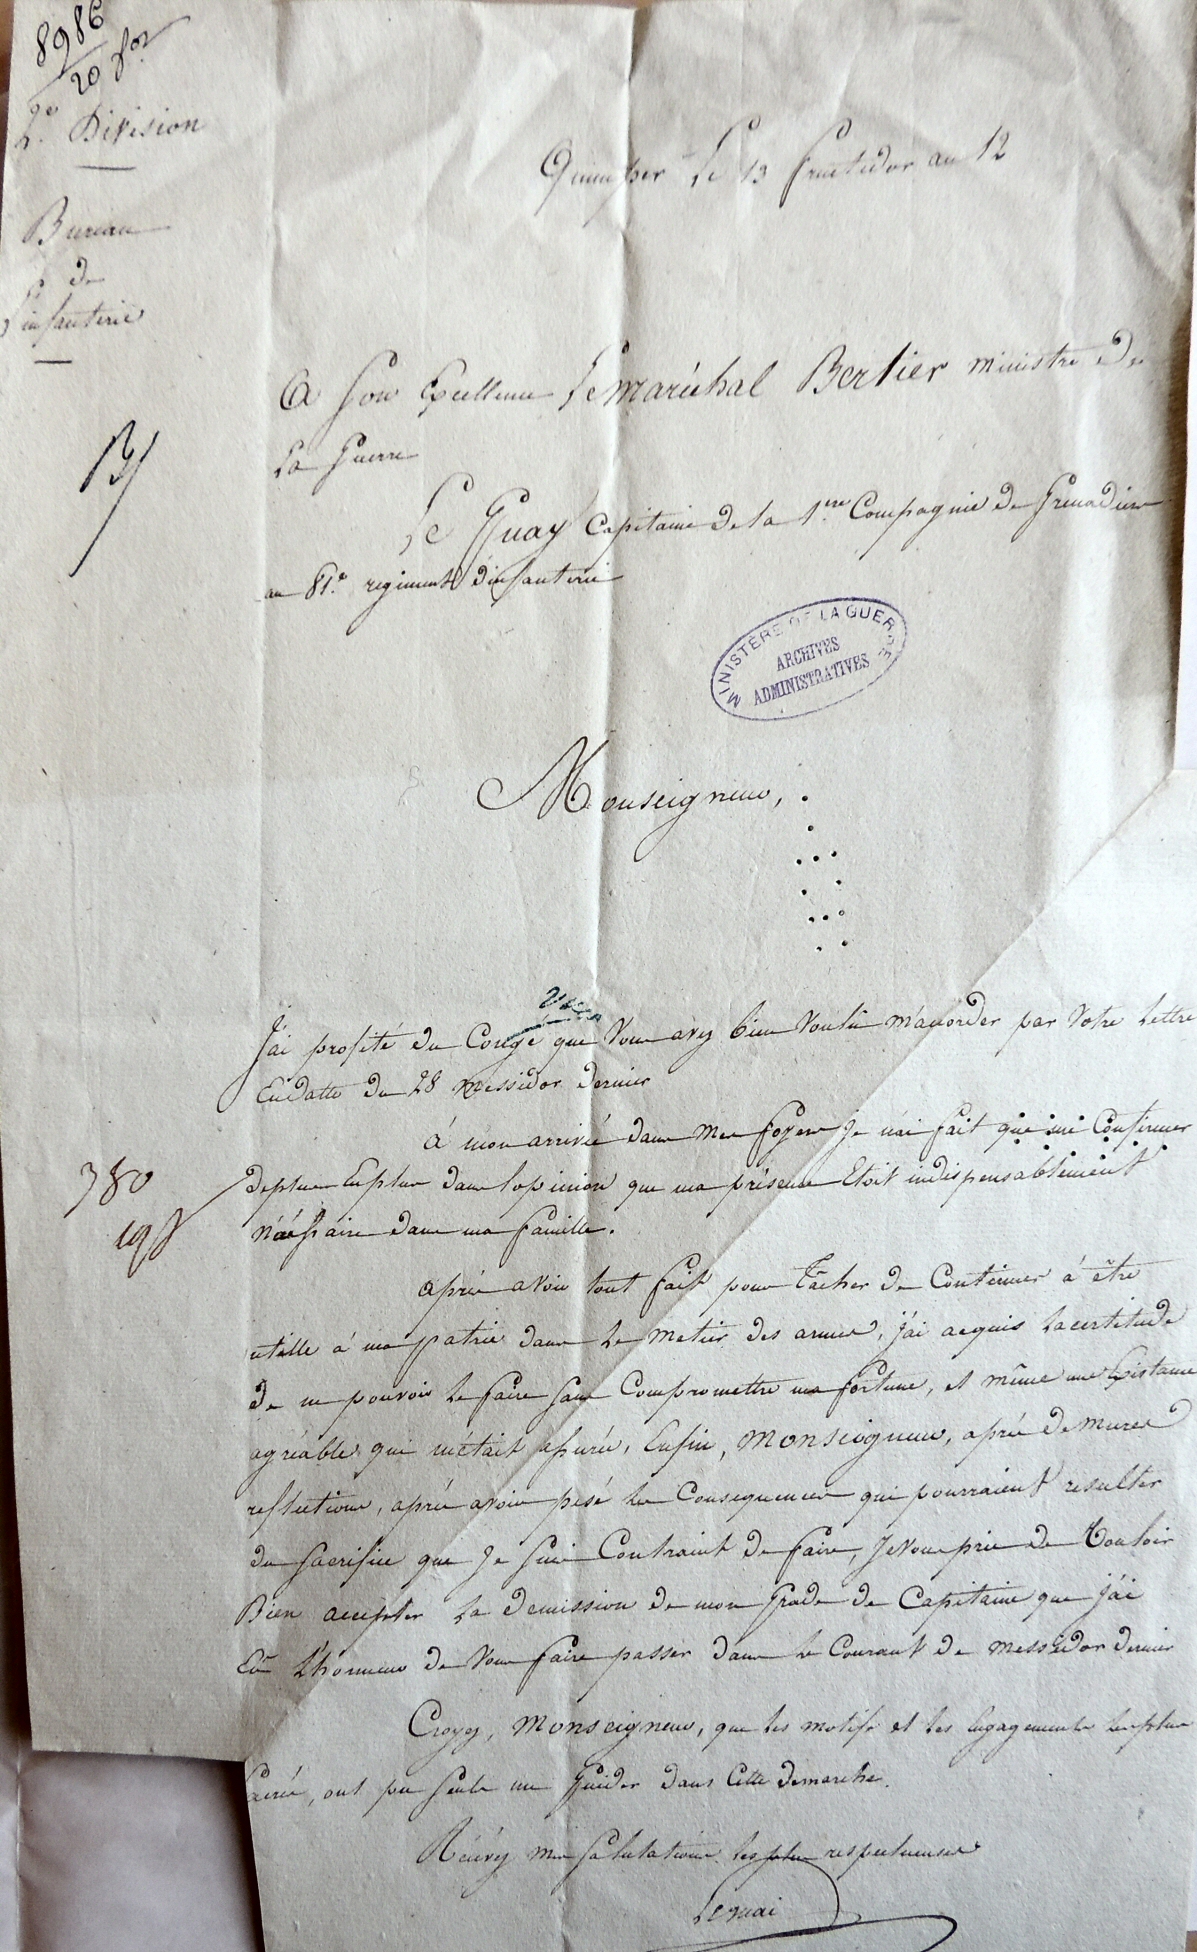 8986
20 f.or
2.e Division
Bureau
de
L'infanterie
Quimper Le 13 fructidor an 12
A Son Excellence Le maréchal Bertier ministre De
La Guerre
Le Quay Capitaine de la 1.ere Compagnie de Grenadiers
au 81.e regiment d'infanterie
MINISTÈRE DE LA GUERRE
ARCHIVES
ADMINISTRATIVES
Monseigneur,
J'ai profité du Congé que Vous avez bien Voulu m'accorder par Votre Lettre
En Datte du 28 messidor dernier
à mon arrivée dans Mes foyers Je n'ai fait que me Confirmer
de plus En plus dans l'opinion que ma présence Etoit indispensablement
nécessaire dans ma famille.
380
198
après avoir tout fait pour Tâcher de Continuer à être
utille à ma patrie dans le metier des armes, j'ai acquis la certitude
De ne pouvoir le faire sans Compromettre ma fortune, et même une Existance
agréable qui m'était assurée, Enfin, Monseigneur, après de mures
reflections, après avoir pesé les Consequences qui pourraient resulter
du Sacrifice que Je suis Contraint de faire, Je Vous prie de Vouloir
Bien accepter la demission de mon Grade de Capitaine que j'ai
Eû L'honneur de Vous faire passer dans le Courant de messidor dernier
Croyez, Monseigneur, que les motifs et les Engagements les plus
Sacrés, ont pu seuls me Guider dans Cette demarche.
Recevez mes Salutations les plus respectueuses
Lequai